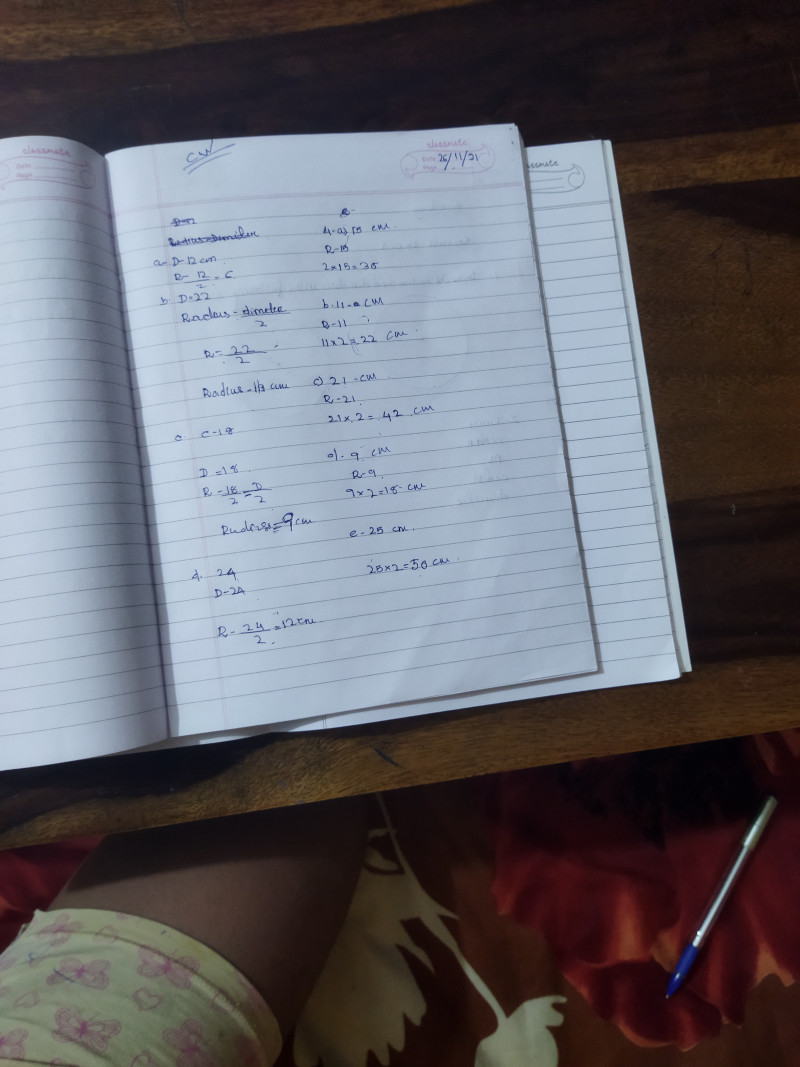 classmate
Date
Page
CW
classmate
Date 26/11/21
Page
classmate
D-12
a- D-12 cm
R- 12/2 = 6
b. D=22
Radius - dimeter/2
R= 22/2
Radius - 11 cm
c. C-18
D = 18
R - 18/2 = D/2
Radius = 9 cm
d. 24
D-24
R- 24/2 = 12 cm
4-a) 15 cm
R-15
2x15=30
b. 11-cm
R-11
11x2=22 cm
c) 21-cm
R-21
21x2=42 cm
d- 9 cm
R-9
9x2=18 cm
e-25 cm
25x2=50 cm